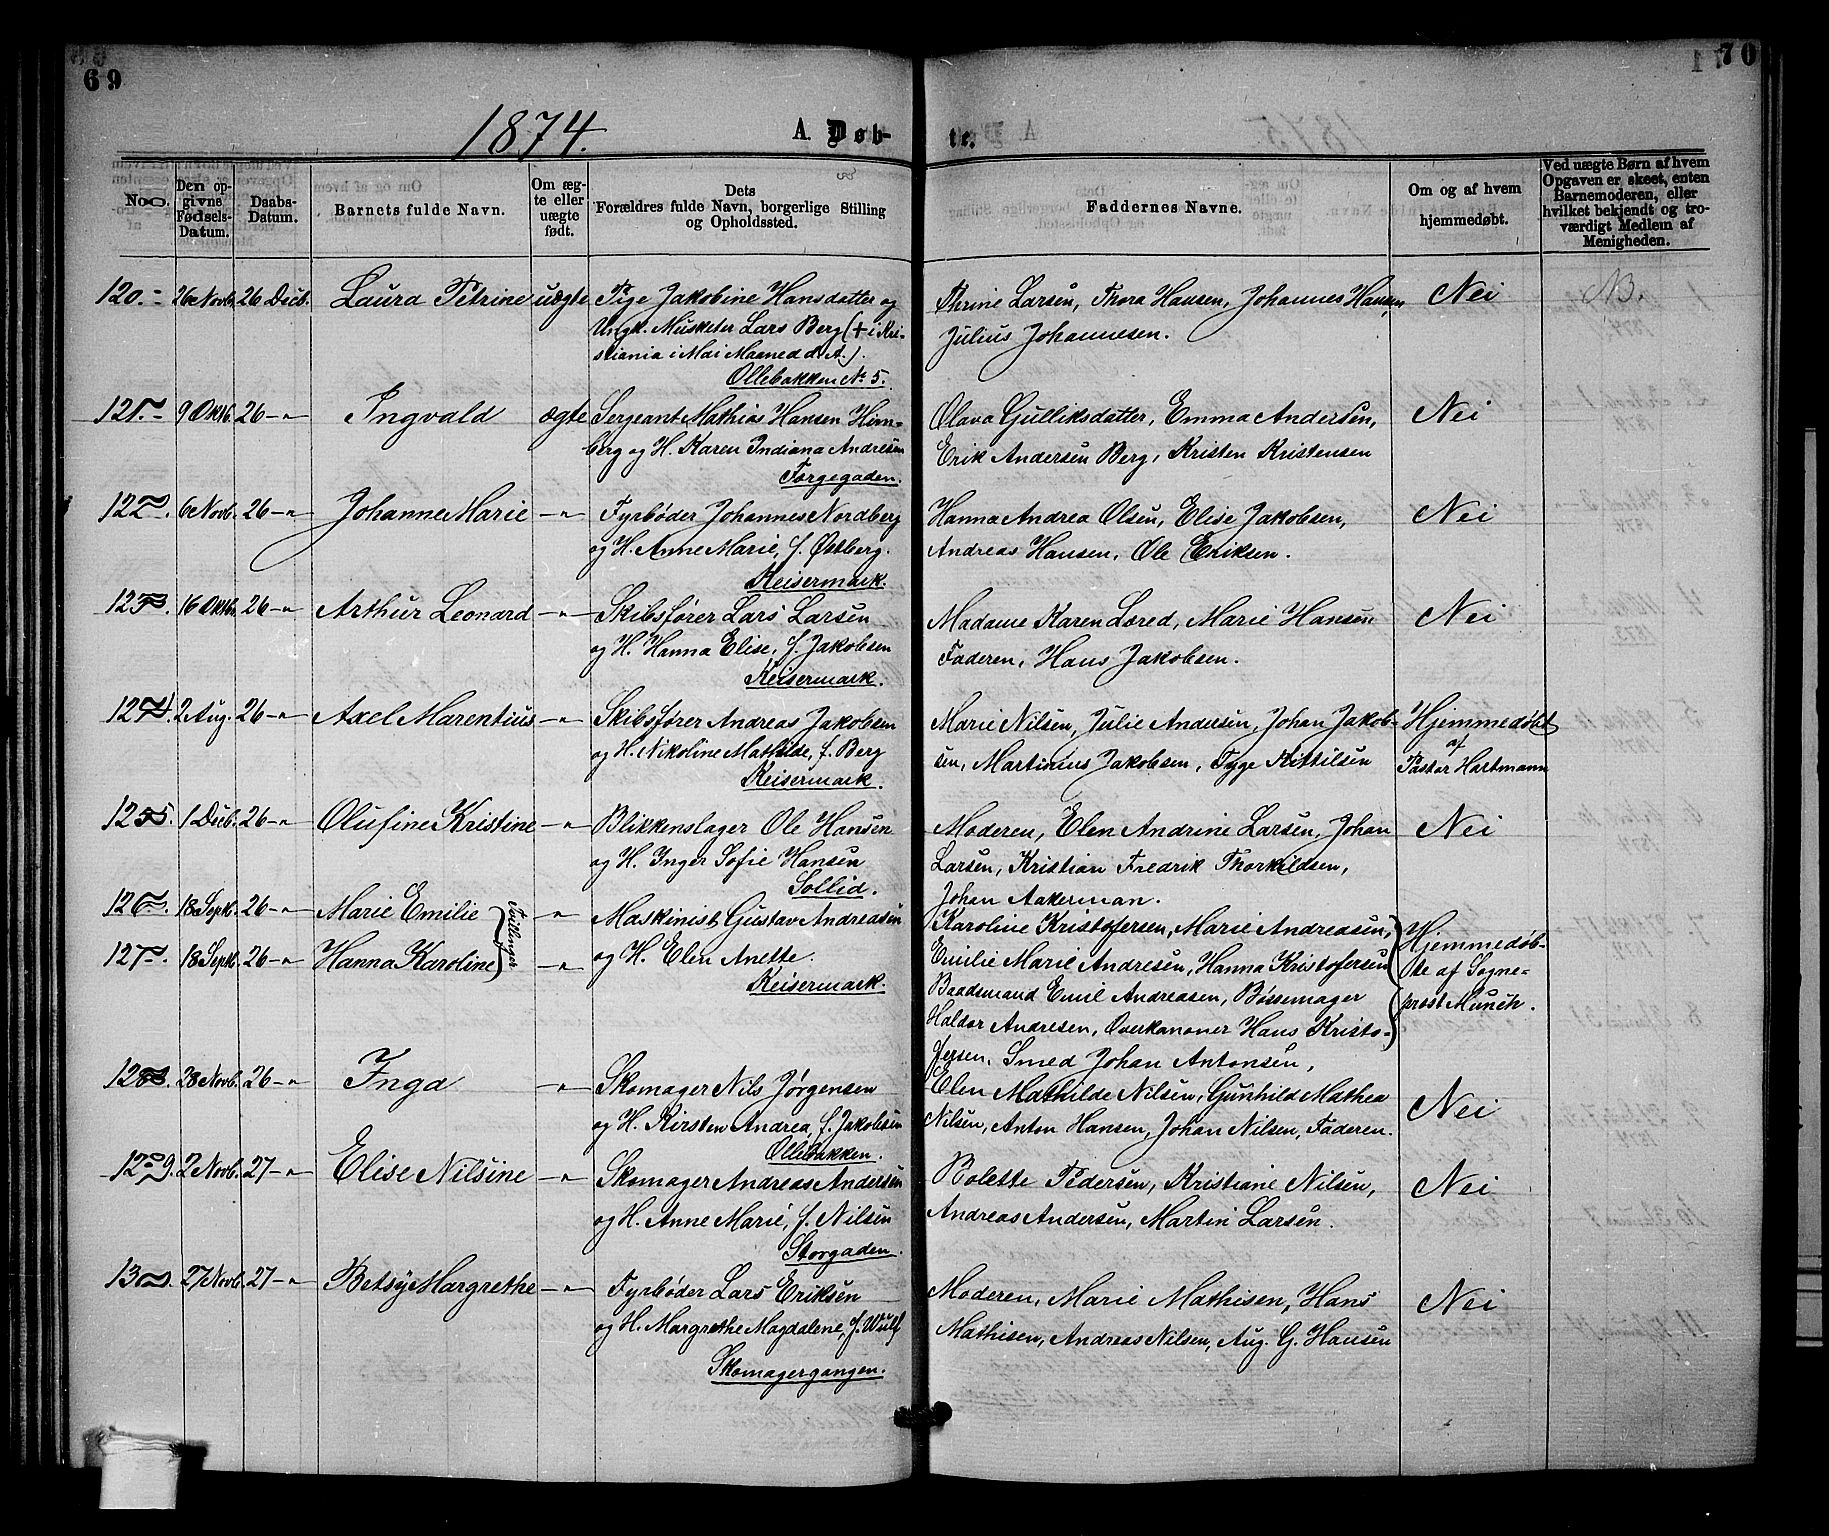 69
70
1874.
A. Døb-
te.
No.
Den op-
givne
Fødsels-
Datum.
Daabs-
Datum.
Barnets fulde Navn.
Om æg-
te eller
uægte
født.
Dets
Forældres fulde Navn, borgerlige Stilling
og Opholdssted.
Faddernes Navne.
Om og af hvem
hjemmedøbt.
Ved uægte Børn af hvem
Opgaven er skeet, enten
Barnemoderen, eller
hvilket bekjendt og tro-
værdigt Medlem af
Menigheden.
120. 26 Novb. 26 Decb. Laura Petrine uægte Pige Jakobine Hansdatter og
Ungk. Musketer Lars Berg (+ i Kri-
stiania i Mai Maaned d. A.).
Ollebakken No 5.
Thrine Larsen, Thora Hansen, Johannes Hansen,
Julius Johannesen.
Nei
NB.
121. 9 Oktb. 26 -"- Ingvald ægte Sergeant Mathias Hansen Him-
berg og H. Karen Indiana Andresen
Torgegaden.
Olava Gulliksdatter, Emma Andersen,
Erik Andersen Berg, Kristen Kristensen
Nei
122. 6 Novb. 26 -"- Johanne Marie -"- Fyrbøder Johannes Nordberg
og H. Anne Marie, f. Østberg.
Keisermark.
Hanna Andrea Olsen, Elise Jakobsen,
Andreas Hansen, Ole Eriksen.
Nei
123. 16 Oktb. 26 -"- Arthur Leonard -"- Skibsfører Lars Larsen
og H. Hanna Elise, f. Jakobsen
Keisermark.
Madame Karen Læred, Marie Hansen
Faderen, Hans Jakobsen.
Nei
124. 2 Aug. 26 -"- Axel Marentius -"- Skibsfører Andreas Jakobsen
og H. Nikoline Mathilde, f. Berg
Keisermark.
Marie Nilsen, Julie Andersen, Johan Jakob-
sen, Martinius Jakobsen, Tyge Kittilsen
Hjemmedøbt
af
Pastor Hartmann
125. 1 Decb. 26 -"- Olufine Kristine -"- Blikkenslager Ole Hansen
og H. Inger Sofie Hansen
Sollid.
Moderen, Elen Andrine Larsen, Johan
Larsen, Kristian Fredrik Thorkildsen,
Johan Aakerman.
Nei
126. 18 Septb. 26 -"- Marie Emilie -"- Maskinist Gustav Andreasen
127. 18 Septb. 26 -"- Hanna Karoline -"- og H. Elen Anette.
Tvillinger
Keisermark.
Karoline Kristoffersen, Marie Andreasen,
Emilie Marie Andresen, Hanna Kristoffersen
Baadsmand Emil Andreasen, Bøssemager
Haldor Andresen, Overkanoner Hans Kristo-
fersen, Smed Johan Antonsen,
Hjemmedøb-
te af Sogne-
prest Munch.
128. 28 Novb. 26 -"- Inga -"- Skomager Nils Jørgensen
og H. Kirsten Andrea, f. Jakobsen
Ollebakken.
Elen Mathilde Nilsen, Gunhild Mathea
Nilsen, Anton Hansen, Johan Nilsen, Faderen.
Nei
129. 2 Novb. 27 -"- Elise Nilsine -"- Skomager Andreas Andersen
og H. Anne Marie, f. Nilsen
Storgaden.
Bolette Pedersen, Kristiane Nilsen,
Andreas Andersen, Martin Larsen.
Nei
130. 27 Novb. 27 -"- Betsy Margrethe -"- Fyrbøder Lars Eriksen
og H. Margrethe Magdalene, f. Wulf
Skomagergangen.
Moderen, Marie Mathisen, Hans
Mathisen, Andreas Nilsen, Aug. G. Hansen
Nei